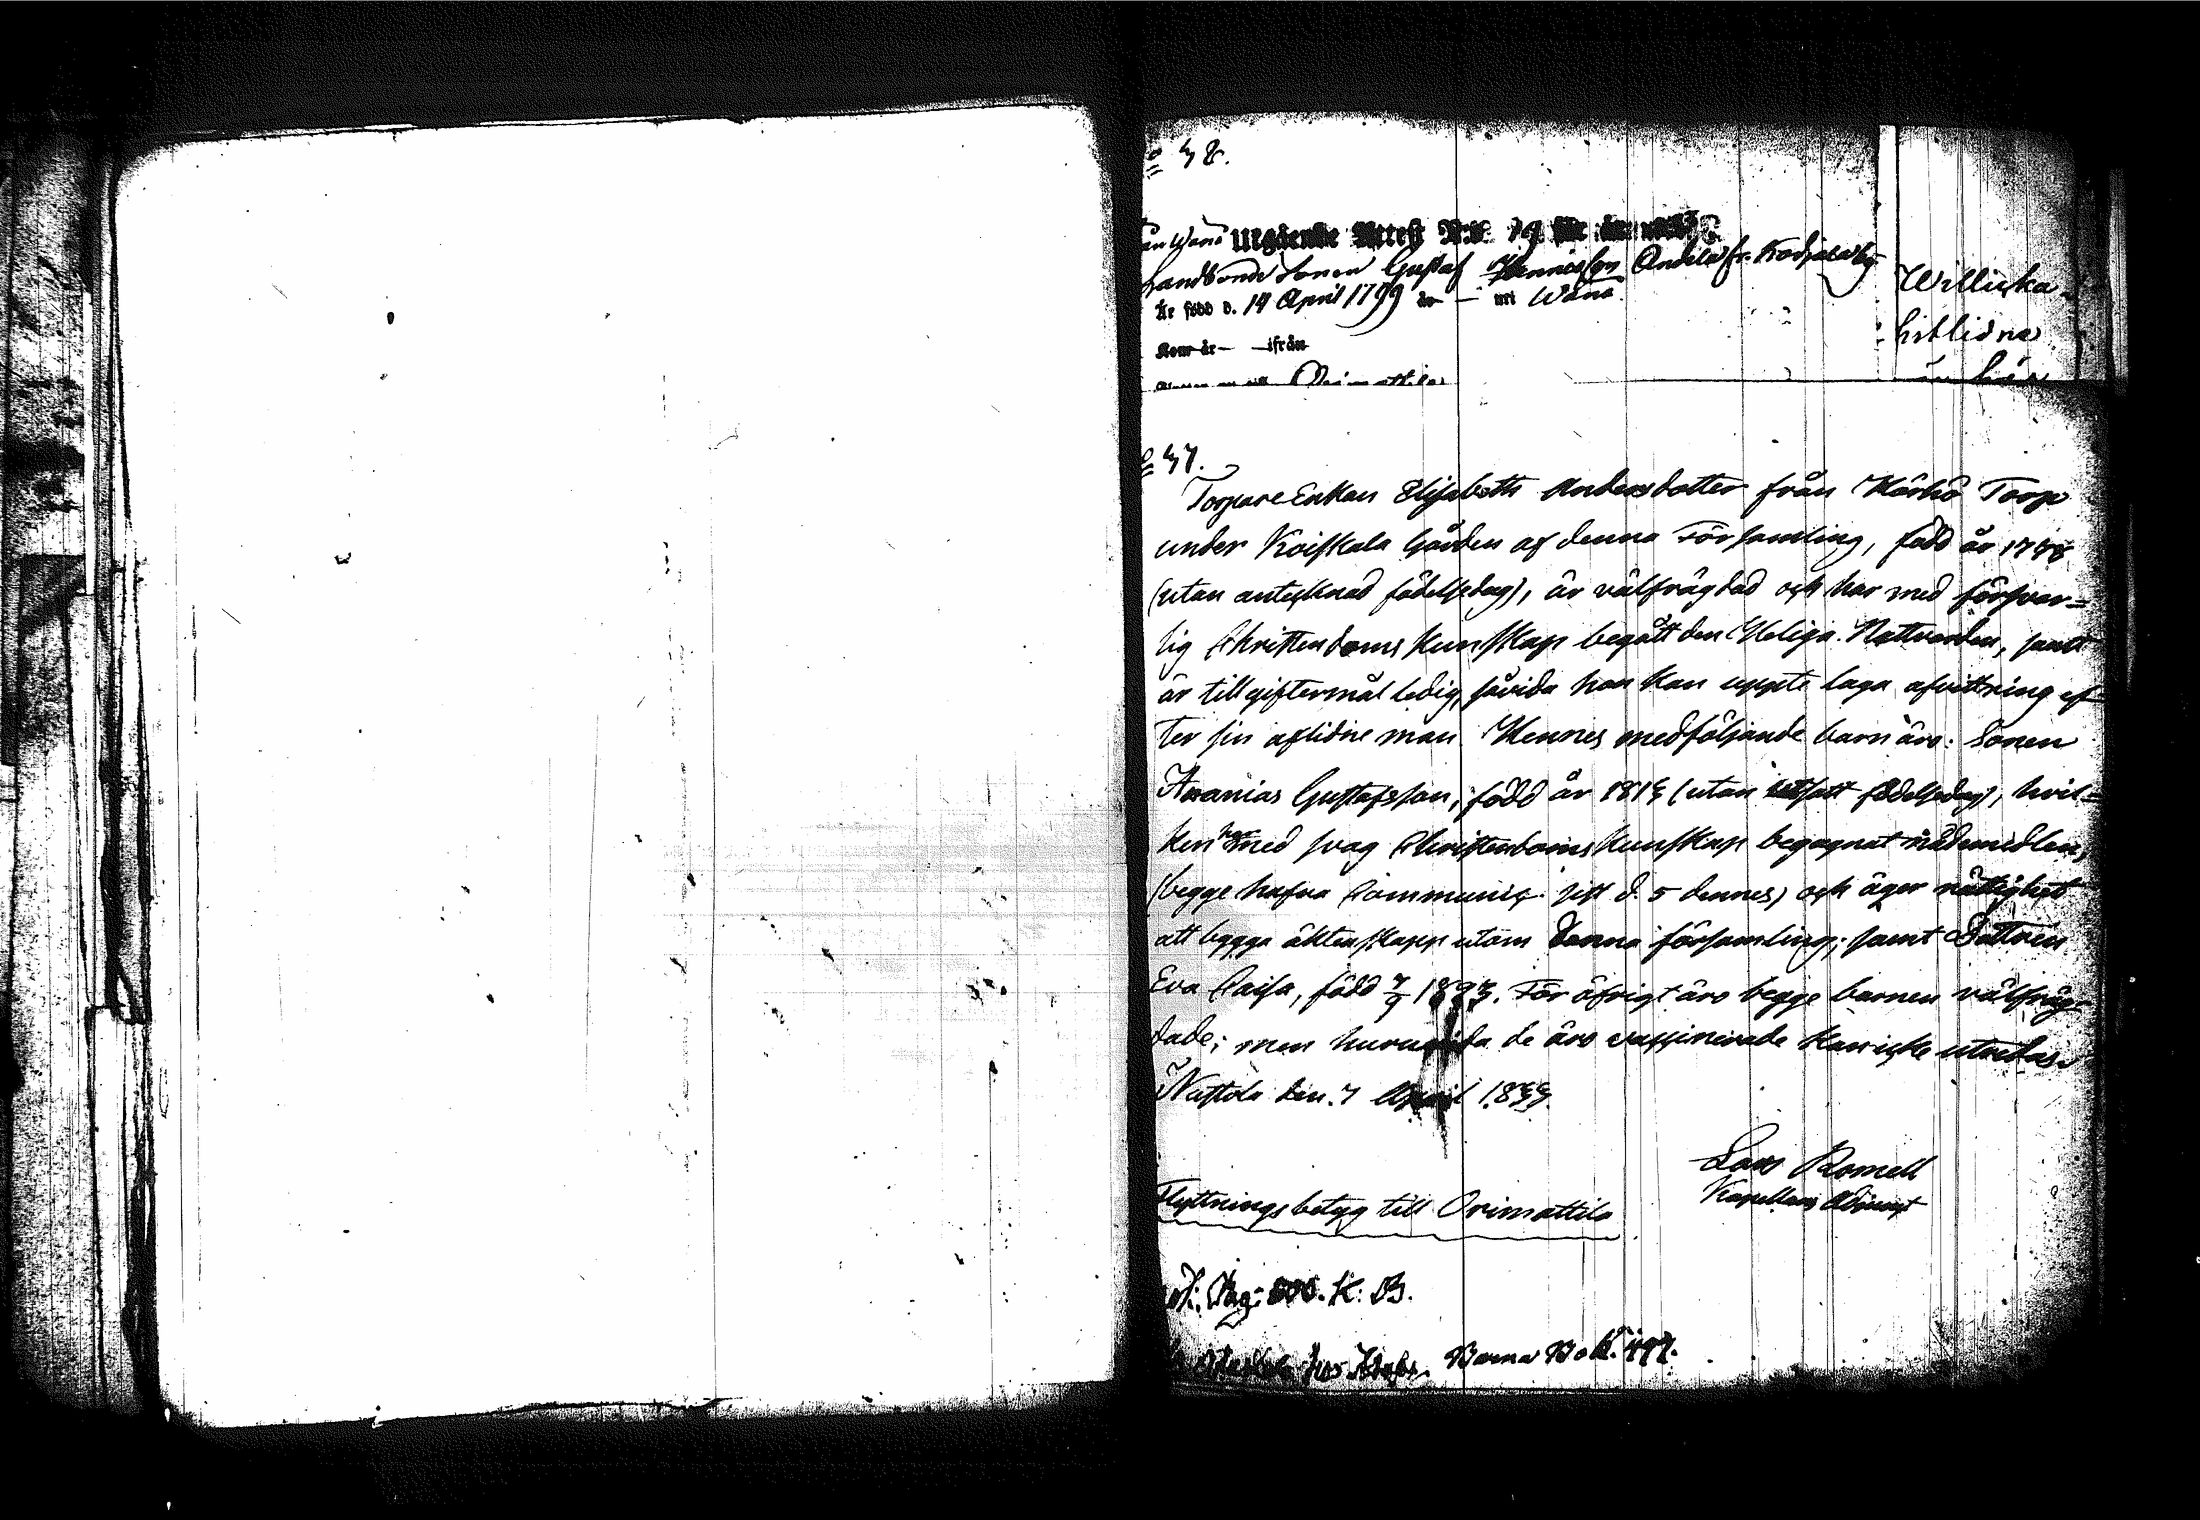 48.
Utgående Attest N:o 19 för år
Landbonde Sonen Gustaf Hennicsson Andela fr. Kodjala by
Är född d. 14 April 1799 år — uti Wånå.
Kom år — ifrån
Orimattila
Williska
hitlidna
47.
Torpare Enkan Elisabeth Andersdotter från Körkö Torp
under Koiskala Gården af denna Församling, född år 1778
(utan antecknad födelsedag), är välfrägdad och har med försvar=
lig Christendoms kunskap begått den Heliga Nattvarden, samt
är till giftermål ledig, såvida hon kan uppte laga afvittring ef-
ter sin aflidne man. Hennes medföljande barn äro: Sonen
Ananias Gustafsson, född år 1813 (utan utsatt födelsedag), hvil=
ken har med svag Christendoms kunskap begagnat nådemedlen,
(begge hafva Communic. sist d. 5 dennes) och äger rättighet
att bygga äktenskapp utom denna församling; samt Dottren
Eva Caisa, född 7/9 1823. För öfrigt äro begge barnen välfräg-
dade; men huruvida de äro vaccinerade kan icke utredas.
Nastola den 7 April 1833.
Lars Homell
Kapellans Adjunct
Flyttningsbetyg till Orimattila
Pag: 500. K. B.
Barna Bok. 497.